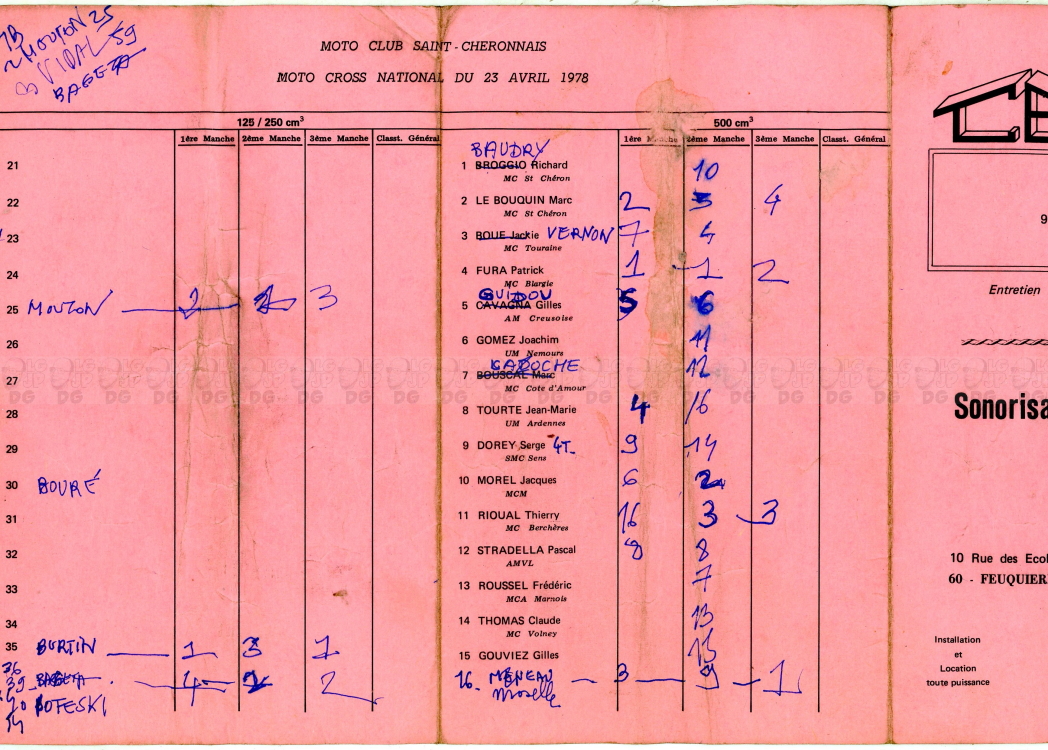 MOUTON 25
VIDAL 59
BAGETA
MOTO CLUB SAINT-CHERONNAIS
MOTO CROSS NATIONAL DU 23 AVRIL 1978
125 / 250 cm³
1ère Manche 2ème Manche 3ème Manche Classt. Général
21
22
23
24
25 MOUTON 3
26
27
28
29
30 BOURÉ
31
32
33
34
35 BURTIN 1 3 1
36
39 4 2
POTESKI
500 cm³
1ère Manche 2ème Manche 3ème Manche Classt. Général
BAUDRY
1 BROGGIO Richard 10
MC St Chéron
2 LE BOUQUIN Marc 2 5 4
MC St Chéron
3 BOUE Jackie VERNON 7 4
MC Touraine
4 FURA Patrick 1 1 2
MC Blargie
GUIDOU
5 CAVAGNA Gilles 5 6
AM Creusoise
6 GOMEZ Joachim 11
UM Nemours
GABOCHE
7 BOUSCAL Marc 12
MC Cote d'Amour
8 TOURTE Jean-Marie 4 16
UM Ardennes
9 DOREY Serge 4T 9 14
SMC Sens
10 MOREL Jacques 6 2
MCM
11 RIOUAL Thierry 16 3 3
MC Berchères
12 STRADELLA Pascal 8 8
AMVL
13 ROUSSEL Frédéric 7
MCA Marnois
14 THOMAS Claude 13
MC Volney
15 GOUVIEZ Gilles 15
16 MENEAU 3 9 1
Moselle
9
Entretien
Sonorisa
10 Rue des Ecol
60 - FEUQUIER
Installation
et
Location
toute puissance